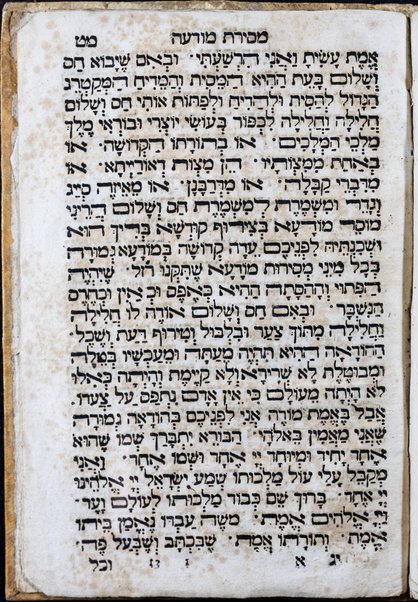 מסירת מודעה מט
אֱמֶת עָשִׂיתָ וַאֲנִי הִרְשַׁעְתִּי׃ וּבְאִם שֶׁיָּבוֹא חַס
וְשָׁלוֹם בָּעֵת הַהִיא הַמֵּסִית וְהַמַּדִּיחַ הַמְקַטְרֵג
הַגָּדוֹל לְהַסִּית וּלְהַדִּיחַ וּלְפַתּוֹת אוֹתִי חַס וְשָׁלוֹם
חָלִילָה וְחָלִילָה לִכְפּוֹר בְּעוֹשִׂי יוֹצְרִי וּבוֹרְאִי מֶלֶךְ
מַלְכֵי הַמְּלָכִים׃ אוֹ בְּתוֹרָתוֹ הַקְּדוֹשָׁה׃ אוֹ
בְּאַחַת מִמִּצְוֹתָיו׃ הֵן מִצְוָה דְאוֹרַיְיתָא׃ אוֹ
מִדִּבְרֵי קַבָּלָה׃ אוֹ מִדְּרַבָּנָן׃ אוֹ מֵאֵיזֶה סְיָיג
וְגָדֵר וּמִשְׁמֶרֶת לְמִשְׁמֶרֶת חַס וְשָׁלוֹם הֲרֵינִי
מוֹסֵר מוֹדָעָא בְּצֵירוּף קוּדְשָׁא בְּרִיךְ הוּא
וּשְׁכִנְתֵּיהּ לִפְנֵיכֶם עֵדָה קְדוֹשָׁה בְּמוֹדָעָא גְמוּרָה
בְּכָל מִינֵי מְסִירוּת מוֹדָעָא שֶׁתִּקְּנוּ רז״ל׃ שֶׁיִּהְיֶה
הַפִּתּוּי וְהַהֲסָתָה הַהִיא כְּאֶפֶס וּכְאַיִן וְכַחֶרֶס
הַנִּשְׁבָּר׃ וּבְאִם חַס וְשָׁלוֹם אוֹדֶה לוֹ חָלִילָה
וְחָלִילָה מִתּוֹךְ צַעַר וּבִלְבּוּל וְטֵירוּף דַּעַת וְשֵׂכֶל׃
הַהוֹדָאָה הַהִיא תִּהְיֶה מֵעַתָּה וּמֵעַכְשָׁיו בְּטֵלָה
וּמְבוּטֶּלֶת לָא שְׁרִירָא וְלָא קַיֶּימֶת וְהָוְיָה כְּאִלּוּ
לֹא הָיְתָה מֵעוֹלָם כִּי אֵין אָדָם נִתְפָּס עַל צַעֲרוֹ׃
אֲבָל בֶּאֱמֶת מוֹדֶה אֲנִי לִפְנֵיכֶם בְּהוֹדָאָה גְמוּרָה
שֶׁאֲנִי מַאֲמִין בֵּאלֹהַי׃ הַבּוֹרֵא יִתְבָּרַךְ שְׁמוֹ שֶׁהוּא
אֶחָד יָחִיד וּמְיוּחָד יְיָ אֶחָד וּשְׁמוֹ אֶחָד׃ וַאֲנִי
מְקַבֵּל עָלַי עוֹל מַלְכוּתוֹ שְׁמַע יִשְׂרָאֵל יְיָ אֱלֹהֵינוּ
יְיָ אֶחָד׃ בָּרוּךְ שֵׁם כְּבוֹד מַלְכוּתוֹ לְעוֹלָם וָעֶד׃
יְיָ אֱלֹהִים אֱמֶת׃ מֹשֶׁה עַבְדּוֹ נֶאֱמַן בֵּיתוֹ
אֱמֶת׃ וְתוֹרָתוֹ אֱמֶת׃ שֶׁבִּכְתָב וְשֶׁבְּעַל פֶּה׃
יג א 1 13 וכל